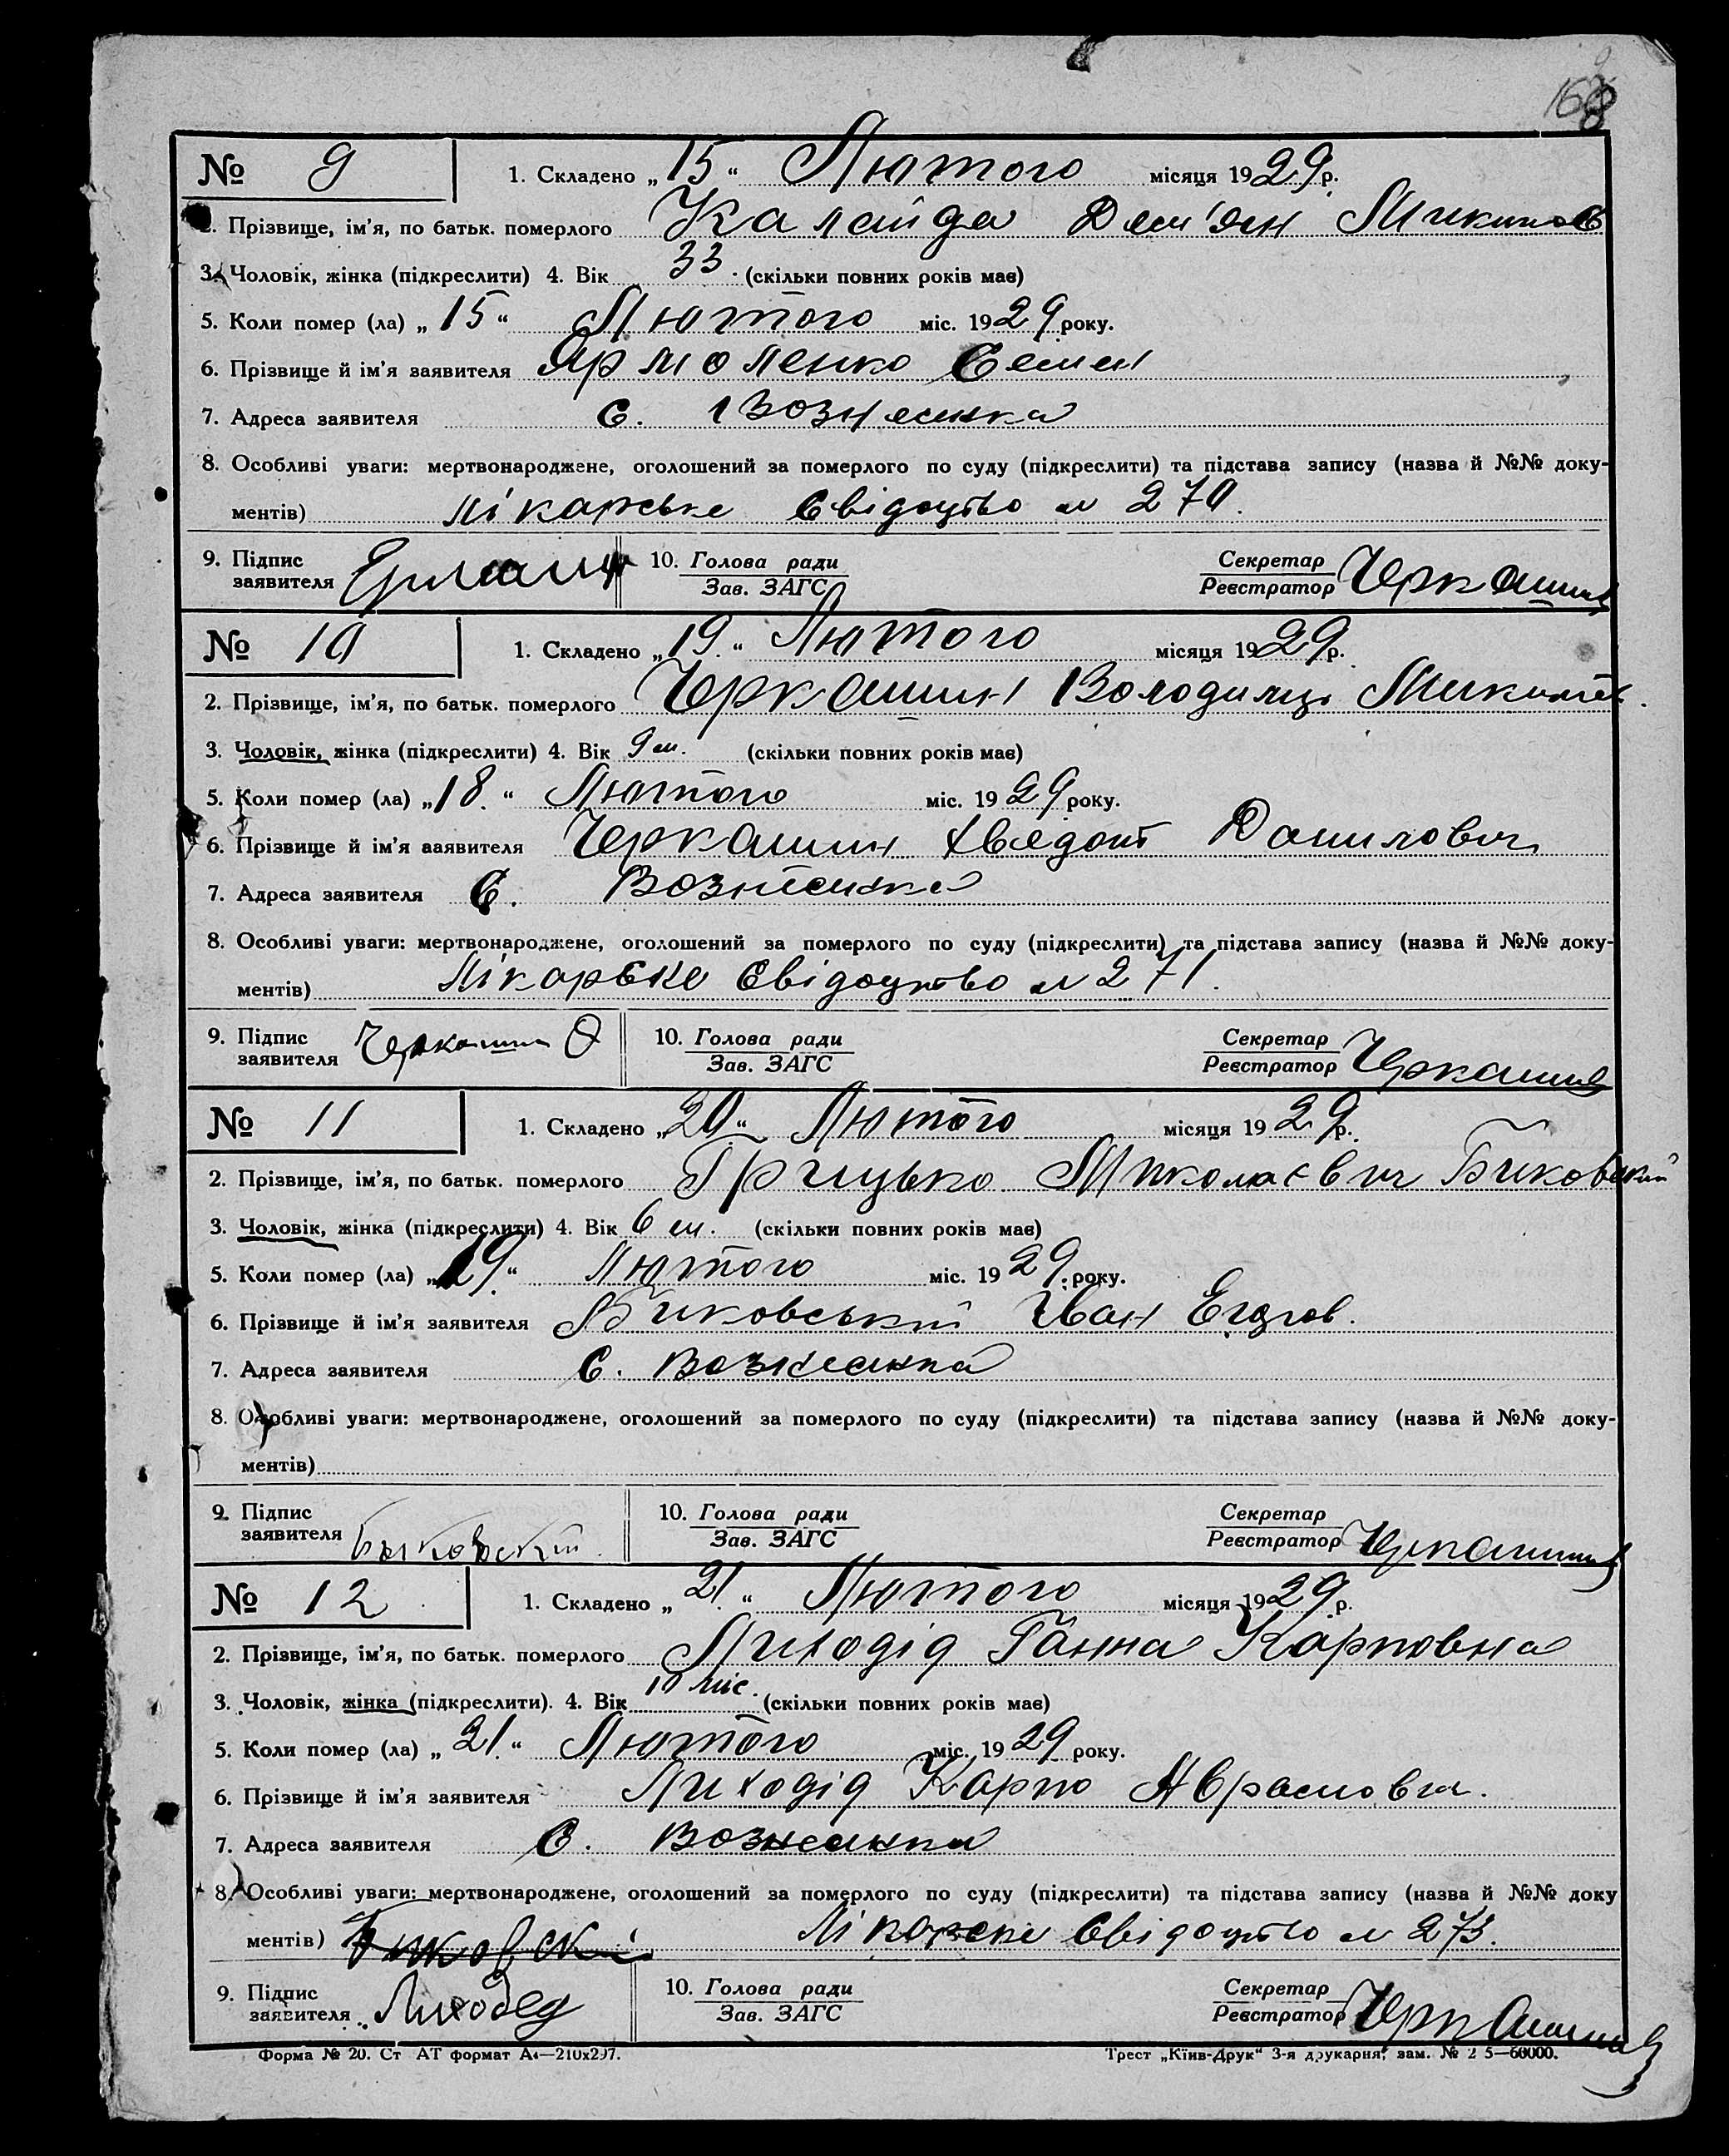 168
№ 9 1. Складено „15“ Лютого місяця 1929 р.
2. Прізвище, ім'я, по батьк. померлого Калайда Дем'ян Микитов
3. Чоловік, жінка (підкреслити) 4. Вік 33 (скільки повних років має)
5. Коли помер (ла) „15“ Лютого міс. 1929 року.
6. Прізвище й ім'я заявителя Ярмоленко Семен
7. Адреса заявителя С. Вознесенка
8. Особливі уваги: мертвонароджене, оголошений за померлого по суду (підкреслити) та підстава запису (назва й №№ доку-
ментів) лікарське свідоцтво № 270.
9. Підпис 10. Голова ради Секретар
заявителя Зав. ЗАГС Реєстратор Черкашин
№ 10 1. Складено „19“ Лютого місяця 1929 р.
2. Прізвище, ім'я, по батьк. померлого Черкашин Володимир Микитов.
3. Чоловік, жінка (підкреслити) 4. Вік 9 м. (скільки повних років має)
5. Коли помер (ла) „18.“ Лютого міс. 1929 року.
6. Прізвище й ім'я заявителя Черкашин Хведот Данилович
7. Адреса заявителя С. Вознесенка
8. Особливі уваги: мертвонароджене, оголошений за померлого по суду (підкреслити) та підстава запису (назва й №№ доку-
ментів) Лікарске свідоцтво № 271.
9. Підпис 10. Голова ради Секретар
заявителя Черкашин Ф Зав. ЗАГС Реєстратор Черкашин
№ 11 1. Складено „20“ Лютого місяця 1929 р.
2. Прізвище, ім'я, по батьк. померлого Грицько Миколаєвич Биковский
3. Чоловік, жінка (підкреслити) 4. Вік 6 м. (скільки повних років має)
5. Коли помер (ла) „19.“ Лютого міс. 1929 року.
6. Прізвище й ім'я заявителя Биковський Іван
7. Адреса заявителя С. Вознесенка
8. Особливі уваги: мертвонароджене, оголошений за померлого по суду (підкреслити) та підстава запису (назва й №№ доку-
ментів)
9. Підпис 10. Голова ради Секретар
заявителя Быковский Зав. ЗАГС Реєстратор Черкашин
№ 12 1. Складено „21.“ Лютого місяця 1929 р.
2. Прізвище, ім'я, по батьк. померлого Лиходід Ганна Карповна
3. Чоловік, жінка (підкреслити). 4. Вік 10 міс. (скільки повних років має)
5. Коли помер (ла) „21.“ Лютого міс. 1929 року.
6. Прізвище й ім'я заявителя Лиходід Карпо Аврамович.
7. Адреса заявителя С. Вознесенка
8. Особливі уваги: мертвонароджене, оголошений за померлого по суду (підкреслити) та підстава запису (назва й №№ доку
ментів) Биковский Лікарске свідоцтво № 273.
9. Підпис 10. Голова ради Секретар
заявителя Лиходед Зав. ЗАГС Реєстратор Черкашин
Форма № 20. Ст АТ формат А4—210х297. Трест „Київ-Друк“ 3-я друкарня, зам. № 2 5—60000.